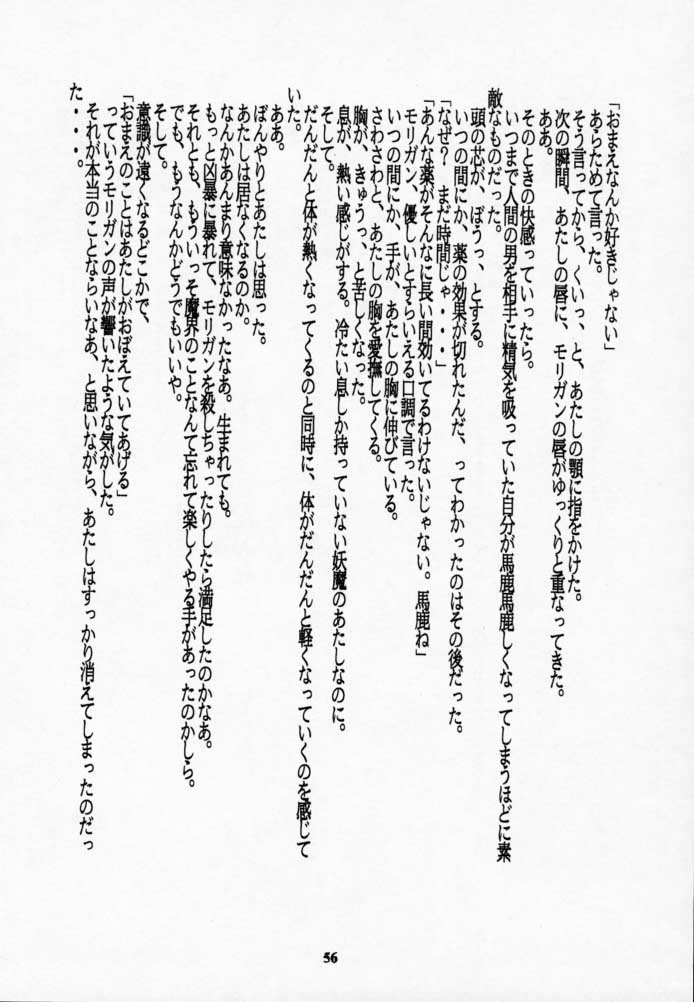 「おまえなんか好きじゃない」
あらためて言った。
そう言ってから、くいっ、と、あたしの顎に指をかけた。
次の瞬間、あたしの唇に、モリガンの唇がゆっくりと重なってきた。
ああ。
そのときの快感っていったら。
いつまで人間の男を相手に精気を吸っていた自分が馬鹿馬鹿しくなってしまうほどに素
敵なものだった。
頭の芯が、ぼうっ、とする。
いつの間にか、薬の効果が切れたんだ、ってわかったのはその後だった。
「なぜ？　まだ時間じゃ・・・」
「あんな薬がそんなに長い間効いてるわけないじゃない。馬鹿ね」
モリガン、優しいとすらいえる口調で言った。
いつの間にか、手が、あたしの胸に伸びている。
さわさわと、あたしの胸を愛撫してくる。
胸が、きゅうっ、と苦しくなった。
息が、熱い感じがする。冷たい息しか持っていない妖魔のあたしなのに。
そして。
だんだんと体が熱くなってくるのと同時に、体がだんだんと軽くなっていくのを感じて
いた。
ああ。
ぼんやりとあたしは思った。
あたしは居なくなるのか。
なんかあんまり意味なかったなあ。生まれても。
もっと凶暴に暴れて、モリガンを殺しちゃったりしたら満足したのかなあ。
それとも、もういっそ魔界のことなんて忘れて楽しくやる手があったのかしら。
でも、もうなんかどうでもいいや。
そして。
意識が遠くなるどこかで、
「おまえのことはあたしがおぼえていてあげる」
っていうモリガンの声が響いたような気がした。
それが本当のことならいなあ、と思いながら、あたしはすっかり消えてしまったのだっ
た・・・。
56